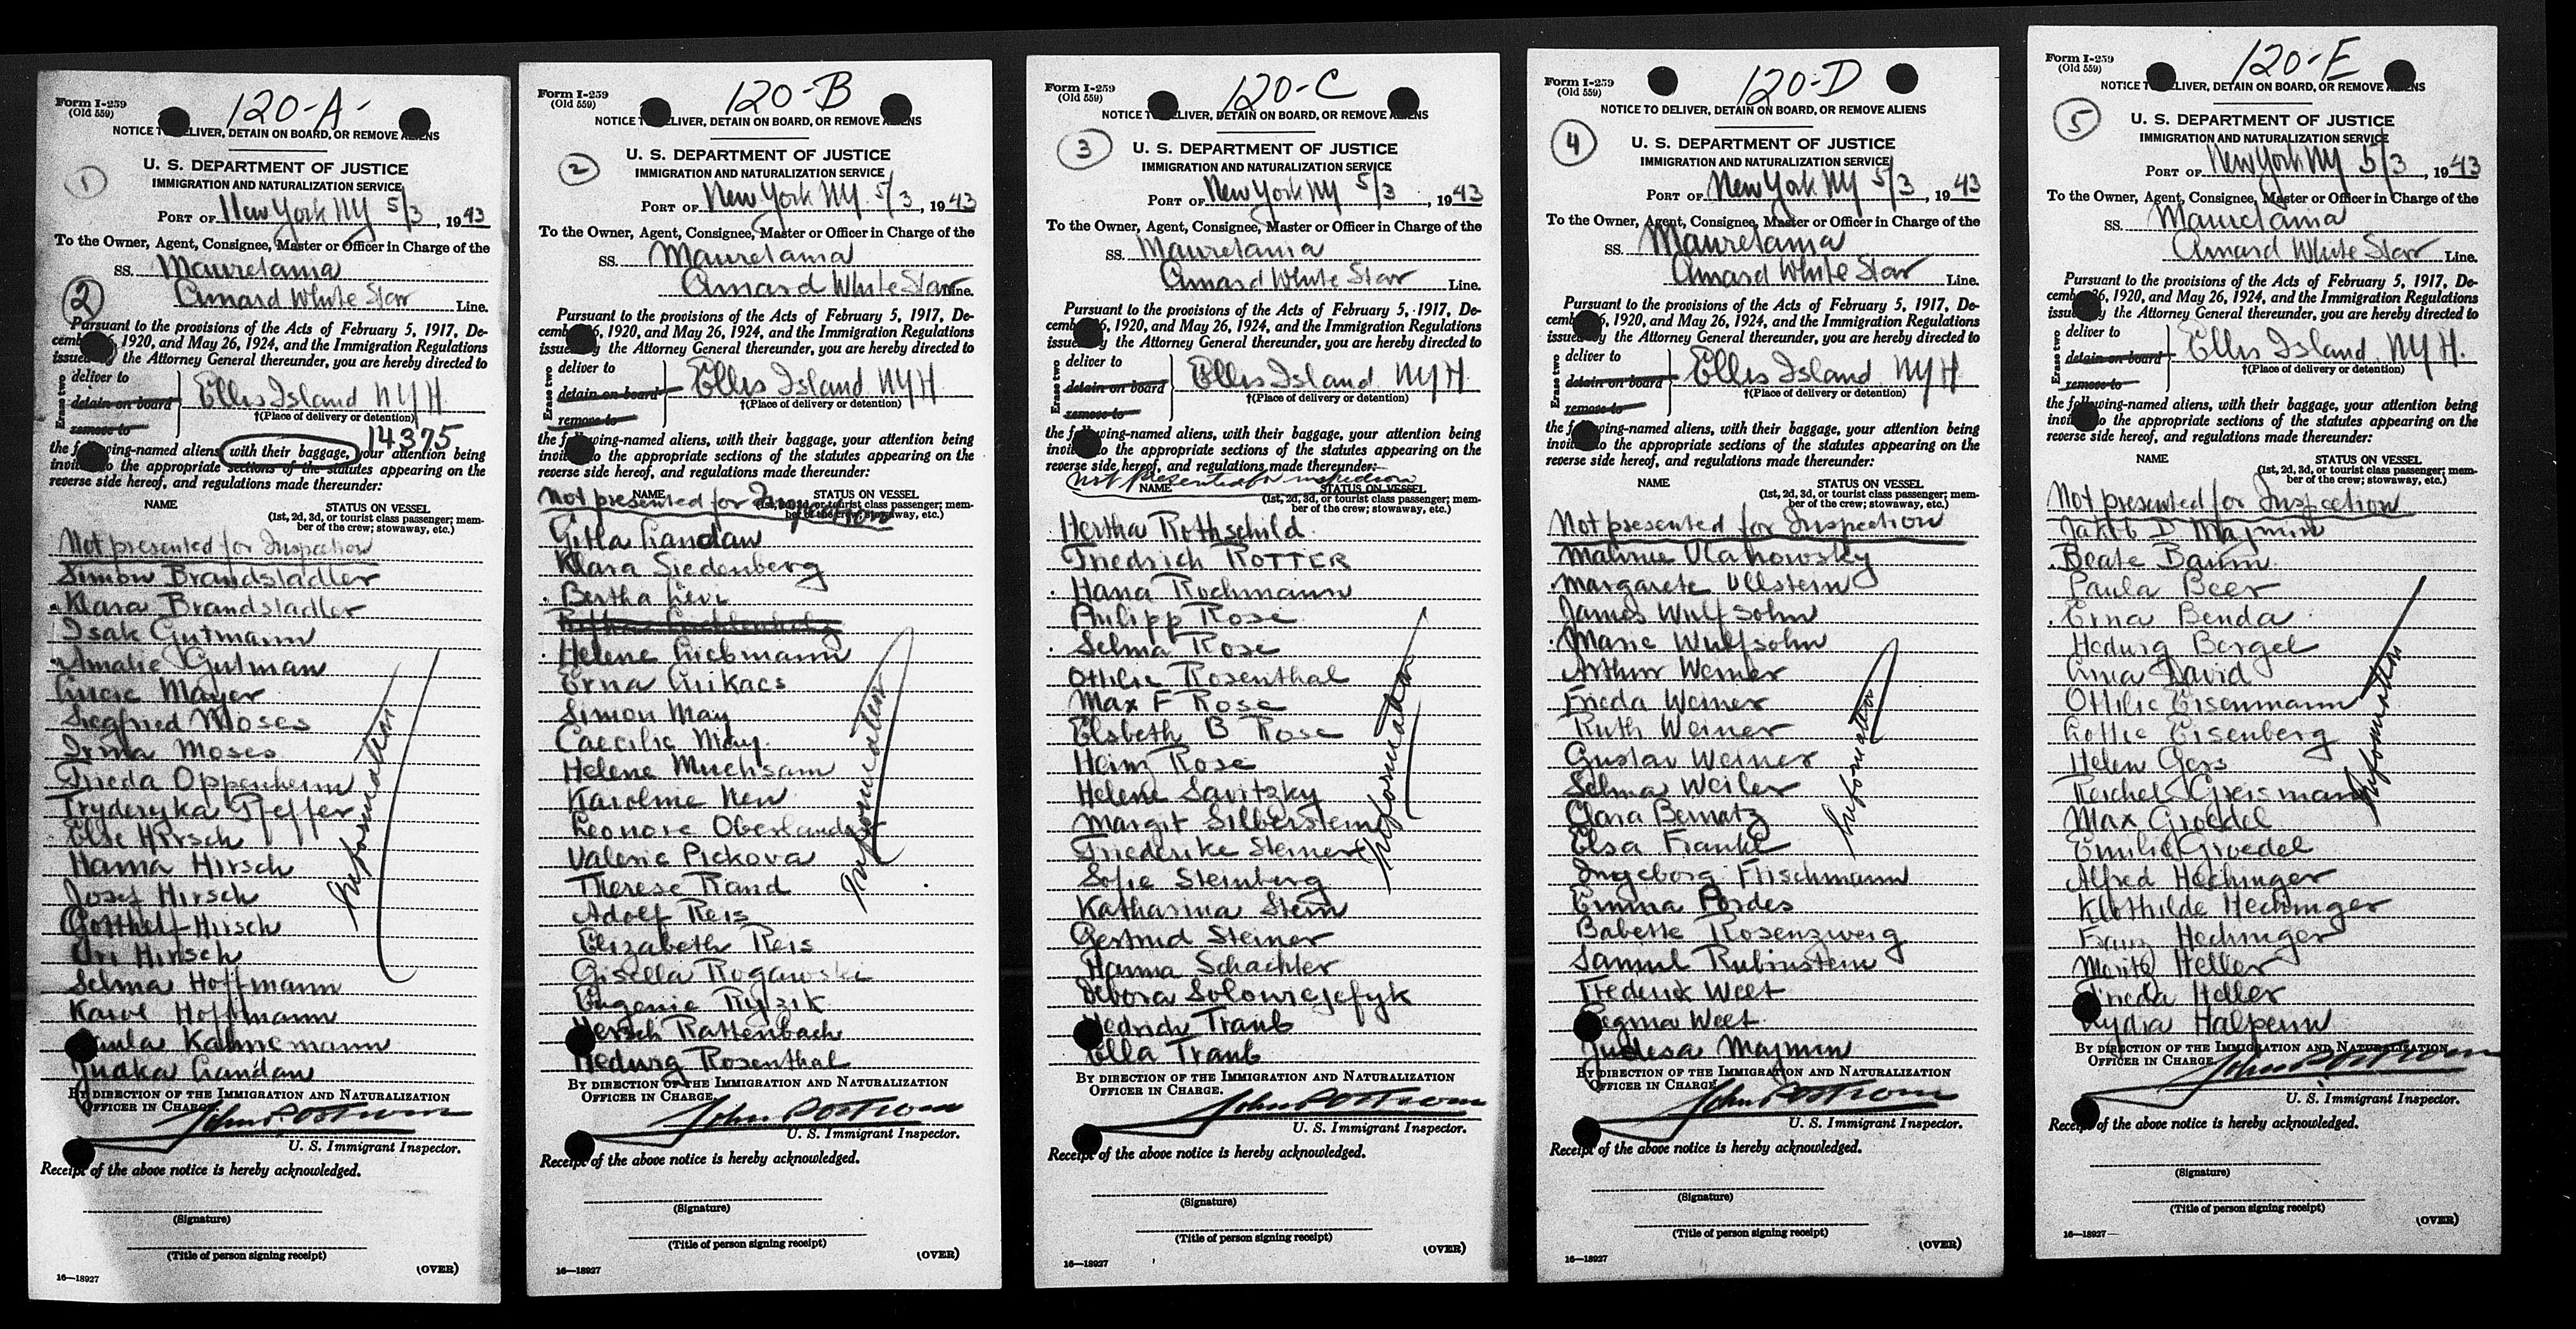 120-A-
Form I-259
(Old 559)
NOTICE T LIVER, DETAIN ON BOARD, OR REMOVE A ENS
U. S. DEPARTMENT OF JUSTICE
1
IMMIGRATION AND NATURALIZATION SERVICE
PORT OF New York NY 5/3, 1943
To the Owner, Agent, Consignee, Master or Officer in Charge of the
SS. Mauretania
2
Cunard White Star Line.
Pursuant to the provisions of the Acts of February 5, 1917, De-
cemb 6, 1920, and May 26, 1924, and the Immigration Regulations
issue y the Attorney General thereunder, you are hereby directed to
Erase two
deliver to
detain on board
remove to
Ellis Island NYH
†(Place of delivery or detention)
14375
the f wing-named aliens, with their baggage, your attention being
invit o the appropriate sections of the statutes appearing on the
reverse side hereof, and regulations made thereunder:
NAME STATUS ON VESSEL
(1st, 2d, 3d, or tourist class passenger; mem-
ber of the crew; stowaway, etc.)
Not presented for Inspection
Simon Brandstadler
Klara Brandstadler
Isak Gutmann
Amalie Gutman
Lucie Mayer
Siegfried Moses
Irma Moses
Frieda Oppenheim
Fryderyka Pfeffer
Else Hirsch
Hanna Hirsch
Josef Hirsch
Gotthelf Hirsch
Uri Hirsch
Selma Hoffmann
Karol Hoffmann
Paula Kahnemann
Judka Landau
Information
BY DIRECTION OF THE IMMIGRATION AND NATURALIZATION
OFFICER IN CHARGE.
John P. Ostrom
U. S. Immigrant Inspector.
Receipt of the above notice is hereby acknowledged.
(Signature)
(Title of person signing receipt)
(OVER)
16—18927
120-B
Form I-259
(Old 559)
NOTICE T ELIVER, DETAIN ON BOARD, OR REMOVE A ENS
2
U. S. DEPARTMENT OF JUSTICE
IMMIGRATION AND NATURALIZATION SERVICE
PORT OF New York NY. 5/3, 1943
To the Owner, Agent, Consignee, Master or Officer in Charge of the
SS. Mauretania
Cunard White Star Line.
Pursuant to the provisions of the Acts of February 5, 1917, De-
cemb 6, 1920, and May 26, 1924, and the Immigration Regulations
issue y the Attorney General thereunder, you are hereby directed to
Erase two
deliver to
detain on board
remove to
Ellis Island NYH
†(Place of delivery or detention)
the f wing-named aliens, with their baggage, your attention being
invit o the appropriate sections of the statutes appearing on the
reverse side hereof, and regulations made thereunder:
NAME STATUS ON VESSEL
(1st, 2d, 3d, or tourist class passenger; mem-
ber of the crew; stowaway, etc.)
Not presented for Inspection
Gitla Landau
Klara Siedenberg
Bertha Levi
Helene Liebmann
Erna Lukacs
Simon May
Caecilie May
Helene Muehsam
Karoline Neu
Leonore Oberlander
Valerie Pickova
Therese Rand
Adolf Reis
Elizabeth Reis
Gisella Rogawski
Eugenie Ryzik
Hersch Rattenbach
Hedwig Rosenthal
Information
BY DIRECTION OF THE IMMIGRATION AND NATURALIZATION
OFFICER IN CHARGE.
John P Ostrom
U. S. Immigrant Inspector.
Receipt of the above notice is hereby acknowledged.
(Signature)
(Title of person signing receipt)
(OVER)
16—18927
120-C
Form I-259
(Old 559)
NOTICE T LIVER, DETAIN ON BOARD, OR REMOVE A ENS
3
U. S. DEPARTMENT OF JUSTICE
IMMIGRATION AND NATURALIZATION SERVICE
PORT OF New York NY 5/3, 1943
To the Owner, Agent, Consignee, Master or Officer in Charge of the
SS. Mauretania
Cunard White Star Line.
Pursuant to the provisions of the Acts of February 5, 1917, De-
cemb 6, 1920, and May 26, 1924, and the Immigration Regulations
issue y the Attorney General thereunder, you are hereby directed to
Erase two
deliver to
detain on board
remove to
Ellis Island NYH
†(Place of delivery or detention)
the f wing-named aliens, with their baggage, your attention being
invit o the appropriate sections of the statutes appearing on the
reverse side hereof, and regulations made thereunder:
Not presented for inspection
NAME STATUS ON VESSEL
(1st, 2d, 3d, or tourist class passenger; mem-
ber of the crew; stowaway, etc.)
Hertha Rothschild
Friedrich ROTTER
Hana Rochmann
Philipp Rose
Selma Rose
Ottilie Rosenthal
Max F Rose
Elsbeth B Rose
Heim Rose
Helene Savitzky
Margit Silberstein
Friederike Steiner
Sofie Steinberg
Katharina Stern
Gertrud Steiner
Hanna Schachter
Debora Solowiejefyk
Hedrich Traub
Ella Traub
Information
BY DIRECTION OF THE IMMIGRATION AND NATURALIZATION
OFFICER IN CHARGE.
John P Ostrom
U. S. Immigrant Inspector.
Receipt of the above notice is hereby acknowledged.
(Signature)
(Title of person signing receipt)
(OVER)
16—18927
120-D
Form I-259
(Old 559)
NOTICE TO DELIVER, DETAIN ON BOARD, OR REMOVE ALIENS
4
U. S. DEPARTMENT OF JUSTICE
IMMIGRATION AND NATURALIZATION SERVICE
PORT OF New York NY 5/3, 1943
To the Owner, Agent, Consignee, Master or Officer in Charge of the
SS. Mauretania
Cunard White Star Line.
Pursuant to the provisions of the Acts of February 5, 1917, De-
cemb 6, 1920, and May 26, 1924, and the Immigration Regulations
issued by the Attorney General thereunder, you are hereby directed to
Erase two
deliver to
detain on board
remove to
Ellis Island NYH
†(Place of delivery or detention)
the f wing-named aliens, with their baggage, your attention being
invit o the appropriate sections of the statutes appearing on the
reverse side hereof, and regulations made thereunder:
NAME STATUS ON VESSEL
(1st, 2d, 3d, or tourist class passenger; mem-
ber of the crew; stowaway, etc.)
Not presented for Inspection
Malvine Ulanowsky
Margarete Ullstein
James Wulfsohn
Marie Wulfsohn
Arthur Weiner
Frieda Weiner
Ruth Weiner
Gustav Weiner
Selma Weiler
Clara Bernatz
Elsa Frankl
Ingeborg Frischmann
Emma Pordes
Babette Rosenzweig
Samuel Rubinstein
Frederick Weet
Regina Weet
Judesa Majmin
Information
BY DIRECTION OF THE IMMIGRATION AND NATURALIZATION
OFFICER IN CHARGE.
John P Ostrom
U. S. Immigrant Inspector.
Receipt of the above notice is hereby acknowledged.
(Signature)
(Title of person signing receipt)
(OVER)
16—18927
120-E
Form I-259
(Old 559)
NOTICE T ELIVER, DETAIN ON BOARD, OR REMOVE A ENS
5
U. S. DEPARTMENT OF JUSTICE
IMMIGRATION AND NATURALIZATION SERVICE
PORT OF New York NY 5/3, 1943
To the Owner, Agent, Consignee, Master or Officer in Charge of the
SS. Mauretania
Cunard White Star Line.
Pursuant to the provisions of the Acts of February 5, 1917, De-
cemb 6, 1920, and May 26, 1924, and the Immigration Regulations
issu y the Attorney General thereunder, you are hereby directed to
Erase two
deliver to
detain on board
remove to
Ellis Island NYH.
†(Place of delivery or detention)
the f wing-named aliens, with their baggage, your attention being
invit o the appropriate sections of the statutes appearing on the
reverse side hereof, and regulations made thereunder:
NAME STATUS ON VESSEL
(1st, 2d, 3d, or tourist class passenger; mem-
ber of the crew; stowaway, etc.)
Not presented for Inspection
Jakob D Majmin
Beate Baum
Paula Beer
Erna Benda
Hedwig Bergel
Lina David
Ottilie Eisenmann
Lottie Eisenberg
Helen Gers
Reichel Greismann
Max Groedel
Emilie Groedel
Alfred Hechinger
Klothilde Hechinger
Franz Hechinger
Moritz Heller
Frieda Heller
Lydia Halperin
Information
BY DIRECTION OF THE IMMIGRATION AND NATURALIZATION
OFFICER IN CHARGE.
John P Ostrom
U. S. Immigrant Inspector.
Receipt of the above notice is hereby acknowledged.
(Signature)
(Title of person signing receipt)
(OVER)
16—18927